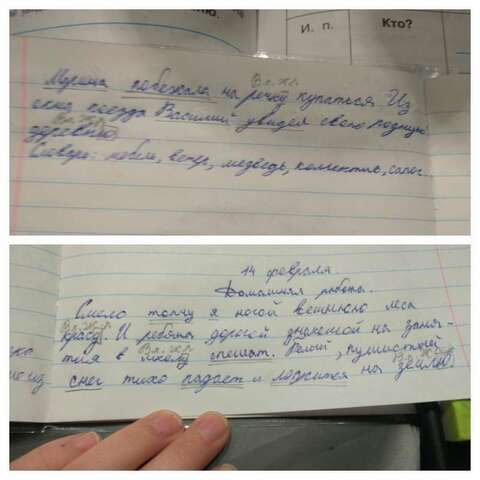 И. п.
Кто?
В.п. ж.р.
Марина побежала на речку купаться. Из
окна поезда Василий увидел свою родную
В.п. ж.р.
деревню.
Словарь: мебель, ветер, медведь, коллектив, сапог.
14 февраля.
Домашняя работа.
Смело топчу я ногой вешнюю леса
В.п. ж.р.
красу. И ребята дорогой знакомой на заня-
В.п. ж.р.
тия в школу спешат. Белый, пушистый
В.п. ж.р.
снег тихо падает и ложится на землю.